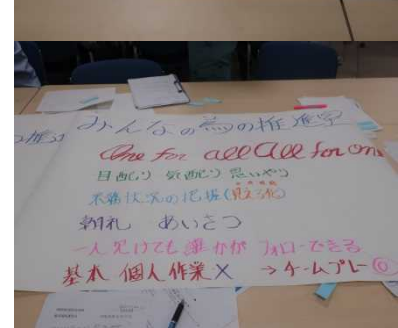 みんなの為の推進室
One for all All for one
目配り 気配り 思いやり
業務状況の把握(見える化)
朝礼 あいさつ
一人欠けても誰かがフォローできる
基本 個人作業× →チームプレー◎